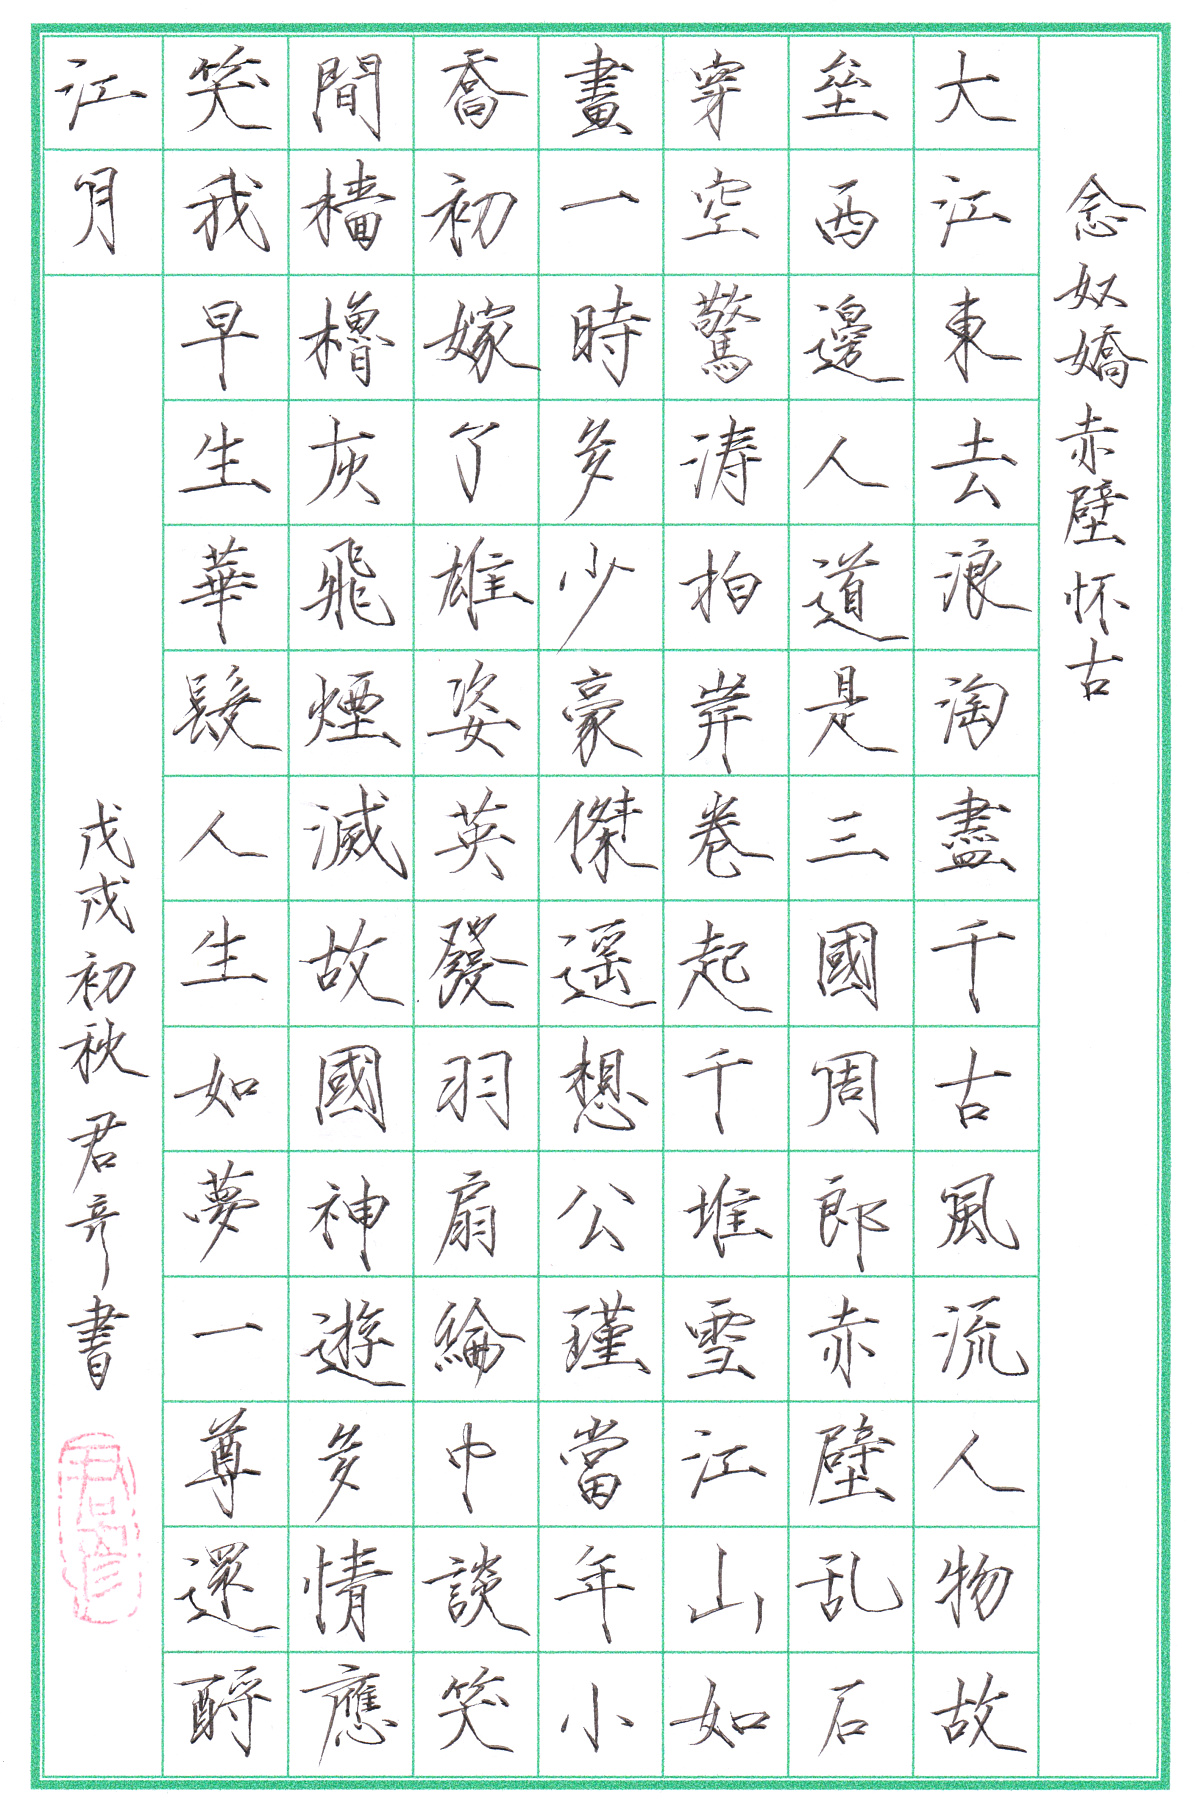 念奴嬌赤壁怀古
大江東去浪淘盡千古風流人物故
壘西邊人道是三國周郎赤壁乱石
穿空驚涛拍岸卷起千堆雪江山如
畫一時多少豪傑遥想公瑾當年小
喬初嫁了雄姿英發羽扇綸巾談笑
間檣櫓灰飛煙滅故國神遊多情應
笑我早生華髮人生如夢一尊還酹
江月
戊戌初秋君彦書
君彦